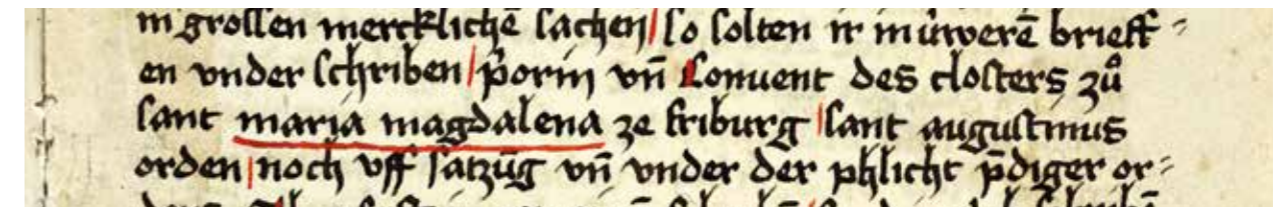 in grossen mercklichē sachen / so solten ir in ǔwerē brieff⸗
en vnder schriben / p̄orin vn̄ Conuent des closters zů
sant maria magdalena ze friburg / sant augustinus
orden / noch vff satzūg vn̄ vnder der phlicht p̄diger or⸗